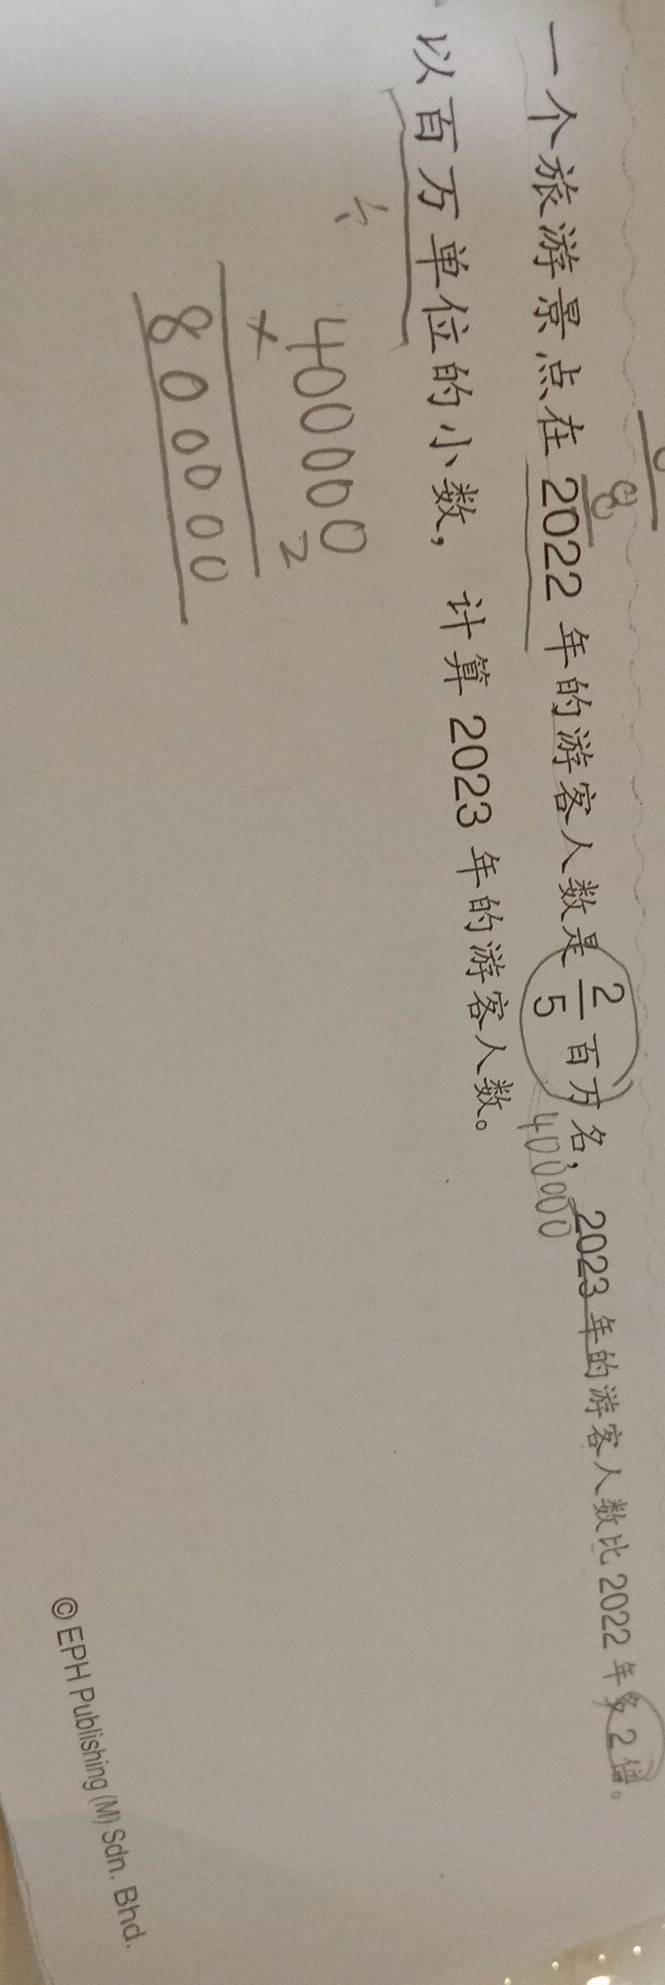 一个旅游景点在 2022 年的游客人数是 2/5 百万名，2023 年的游客人数比 2022 年多 2 倍。
400000
以百万单位的小数，计算 2023 年的游客人数。
400000
× 2
800000
© EPH Publishing (M) Sdn. Bhd.